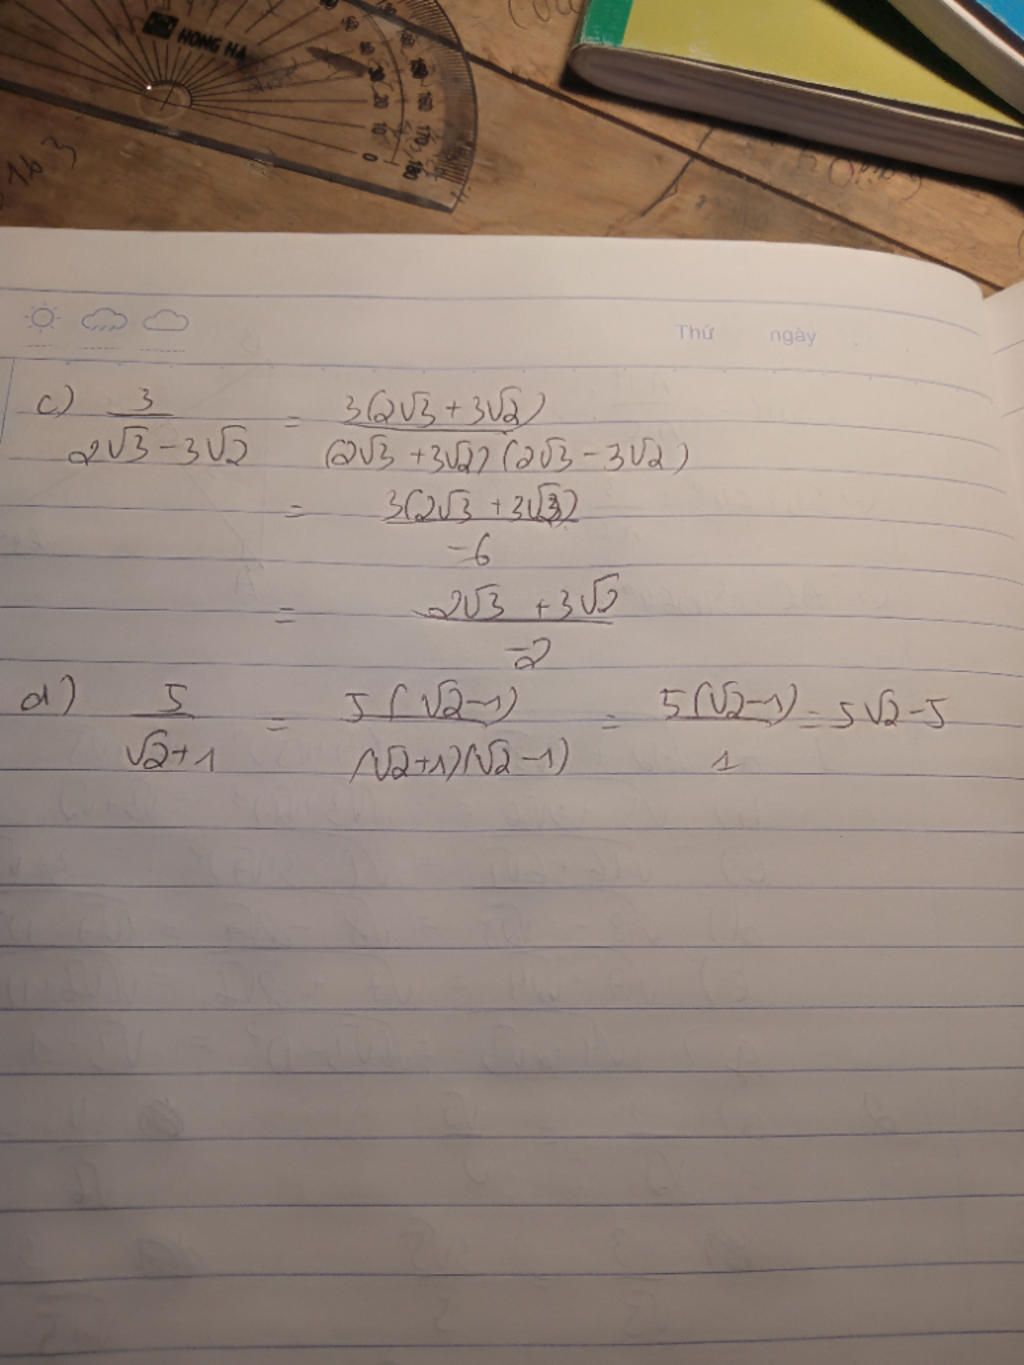 HONG HA
Thứ ngày
c) 3/(2√3 - 3√2) = 3(2√3 + 3√2)/((2√3 + 3√2)(2√3 - 3√2))
= 3(2√3 + 3√2)/-6
= 2√3 + 3√2/-2
d) 5/(√2+1) = 5(√2-1)/((√2+1)(√2-1)) = 5(√2-1)/1 = 5√2-5